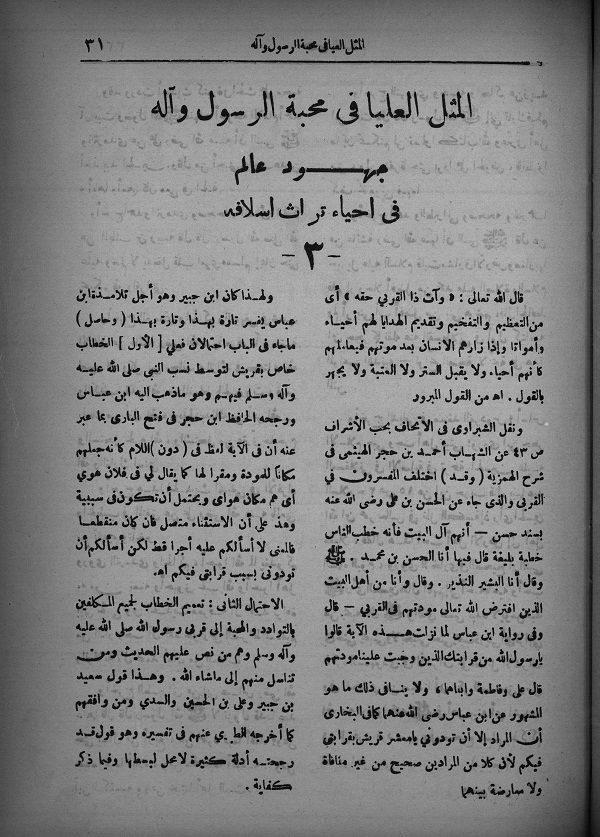 المثل العليا فى محبة الرسول وآله
٣١
المثل العليا فى محبة الرسول وآله
جهود عالم
فى احياء تراث اسلافه
- ٣ -
قال الله تعالى : « وآت ذا القربي حقه » أى
من التعظيم والتفخيم وتقديم الهدايا لهم أحياء
وأمواتا وإذا زارهم الانسان بعد موتهم فيعاملهم
كأنهم أحياء ولا يقبل الستر ولا العتبة ولا يجهر
بالقول . اه من القول المبرور
ونقل الشبراوى فى الاتحاف بحب الأشراف
ص ٤٣ عن الشهاب أحمد بن حجر الهيثمى فى
شرح الهمزية ( وقد ) اختلف المفسرون في
القربى والذى جاء عن الحسن بن على رضى الله عنه
بسند حسن — أنهم آل البيت فأنه خطب الناس
خطبة بليغة قال فيها أنا الحسن بن محمد . ﷺ
وقال أنا البشير النذير . وقال وأنا من أهل البيت
الذين افترض الله تعالى مودتهم فى القربي — قال
وفى رواية ابن عباس لما نزلت هذه الآية قالوا
يارسول الله من قرابتك الذين وجبت علينا مودتهم
قال على وفاطمة وابناهما ، ولا ينافى ذلك ما هو
المشهور عن ابن عباس رضى الله عنهما كما فى البخارى
أن المراد إلا أن تودونى يامعشر قريش بقرابتى
فيكم لأن كلا من المرادين صحيح من غير منافاة
ولا معارضة بينهما
ولهذا كان ابن جبير وهو أجل تلامذة ابن
عباس يفسر تارة بهذا وتارة بهذا ( وحاصل )
ماجاء فى الباب احتمالان فعلي [ الأول ] الخطاب
خاص بقريش لتوسط نسب النبي صلى الله عليه
وآله وسلم فيهم وهو ماذهب اليه ابن عباس
ورجحه الحافظ ابن حجر فى فتح البارى بما عبر
عنه أن فى الآية لفظ فى ( دون ) اللام كأنه جعلهم
مكانا للمودة ومقرا لها كما يقال لي فى فلان هوي
أى هم مكان هواى ويحتمل أن تكون فى سببية
وهذ على أن الاستثناء متصل فان كان منقطعا
فالمنى لا أسألكم عليه أجرا قط لكن أسألكم أن
تودونى بسبب قرابتى فيكم اه
الاحتمال الثانى : تعميم الخطاب لجميع المكلفين
بالتوادد والمحبة إلى قربى رسول الله صلى الله عليه
وآله وسلم وهم من نص عليهم الحديث ومن
تناسل منهم إلى ماشاء الله . وهذا قول سعيد
بن جبير وعلى بن الحسين والسدي ومن وافقهم
كما أخرجه الطبري عنهم فى تفسيره وهو قول قد
رجحته أدلة كثيرة لامحل لبسطها وفيما ذكر
كفاية .